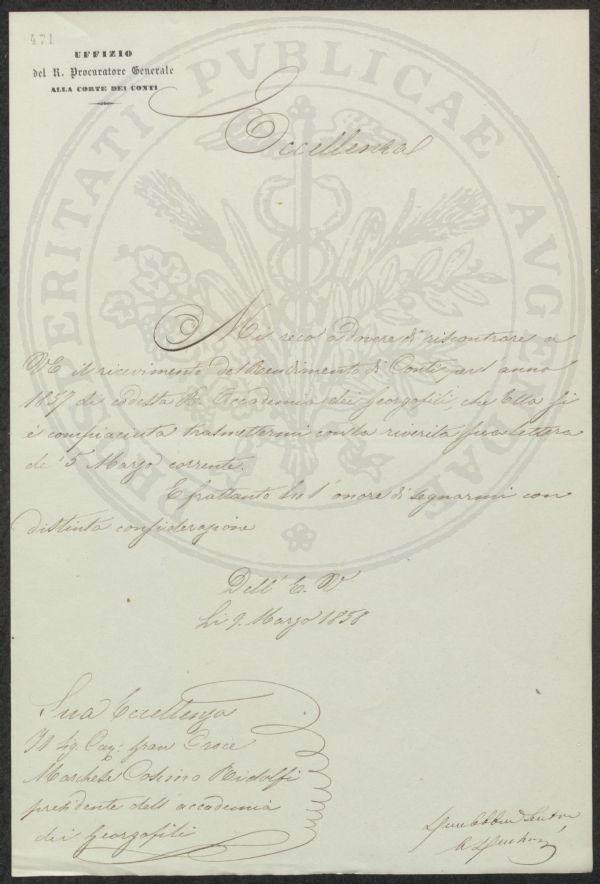 471
UFFIZIO
del R. Procuratore Generale
ALLA CORTE DEI CONTI
Eccellenza
PROSPERITATI PVBLICAE AVGENDAE
Mi reco a dovere di riscontrare a
VE il ricevimento del Rendimento di Conti per l'anno
1857 di codesta R. Accademia dei Georgofili, che Ella si
è compiaciuta trasmettermi con la riverita sua lettera
de' 5 Marzo corrente.
E frattanto ho l'onore di segnarmi con
distinta considerazione
Dell' E. V
Li 9. Marzo 1858
Sua Eccellenza
Il Sig. Cav: Gran Croce
Marchese Cosimo Ridolfi
presidente dell'accademia
dei Georgofili